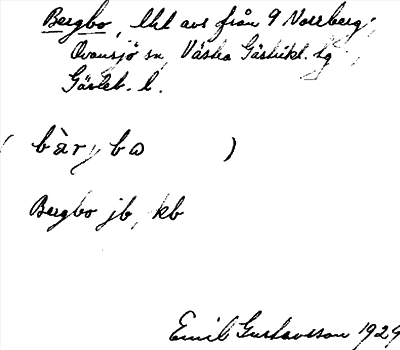 Bergbo, lht avs från 9 Norrberg,
Ovansjö sn, Västra Gästrikl. tg
Gävleb. l.
( bàr, bo )
Bergbo jb, kb
Emil Gustavsson 1929